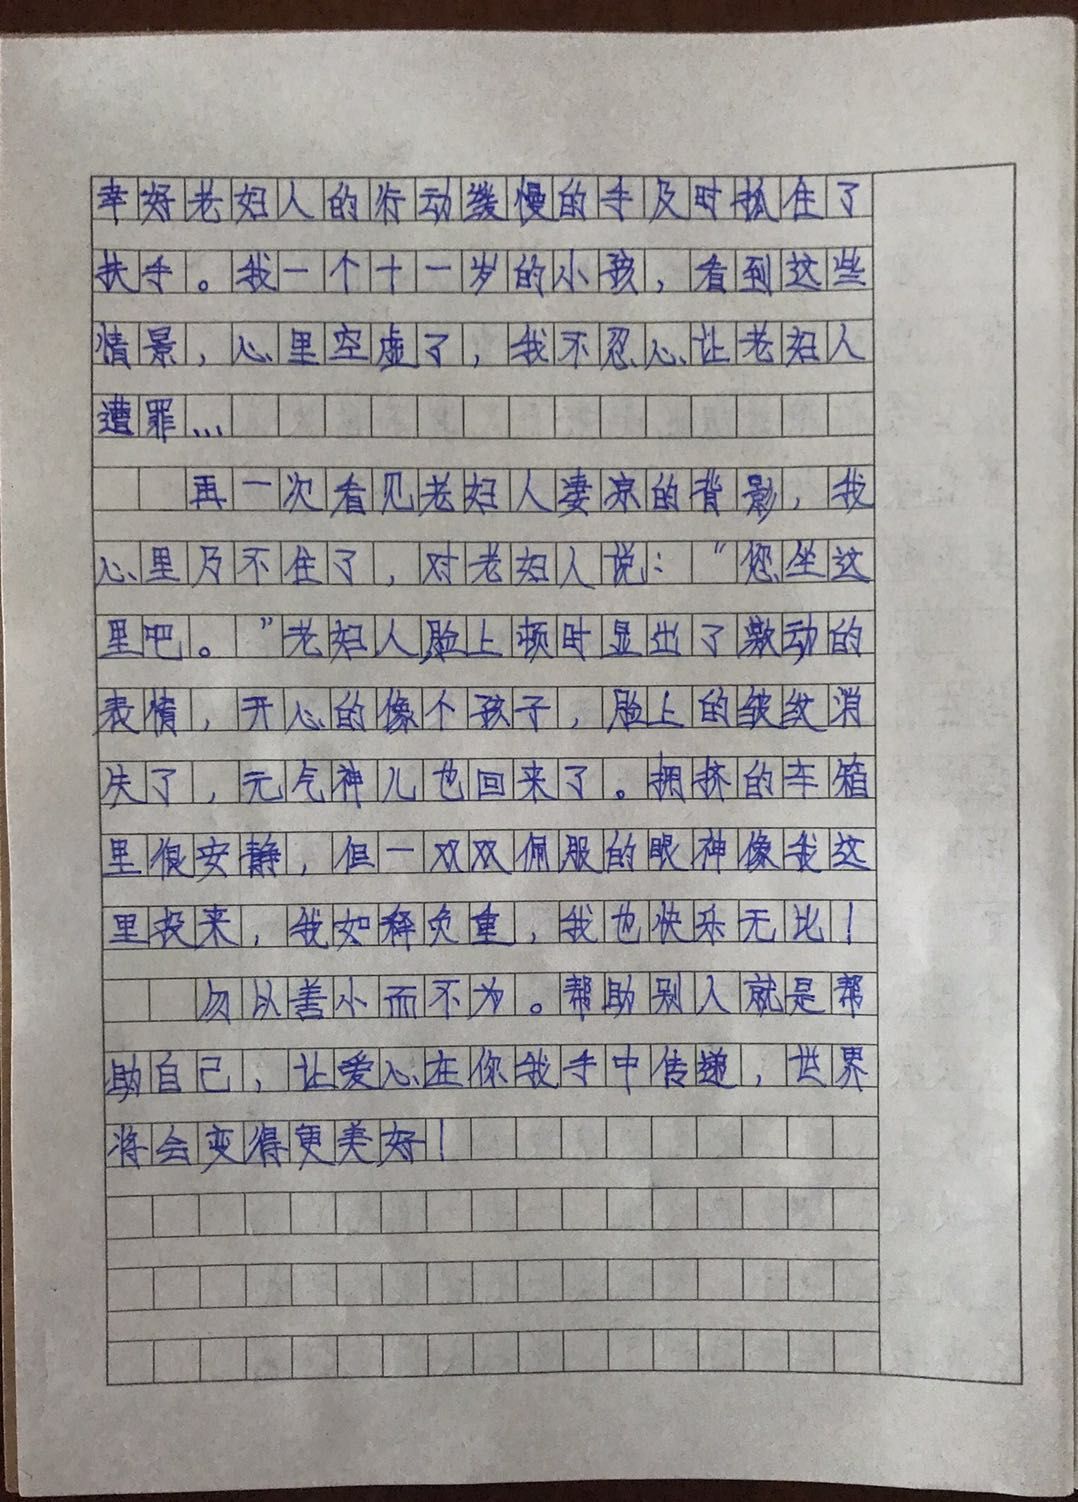 幸好老妇人的行动缓慢的手及时抓住了
扶手。我一个十一岁的小孩，看到这些
情景，心里空虚了，我不忍心让老妇人
遭罪…
再一次看见老妇人凄凉的背影，我
心里乃不住了，对老妇人说：“您坐这
里吧。”老妇人脸上顿时显出了激动的
表情，开心的像个孩子，脸上的皱纹消
失了，元气神儿也回来了。拥挤的车箱
里很安静，但一双双佩服的眼神像我这
里投来，我如释负重，我也快乐无比！
勿以善小而不为。帮助别人就是帮
助自己，让爱心在你我手中传递，世界
将会变得更美好！